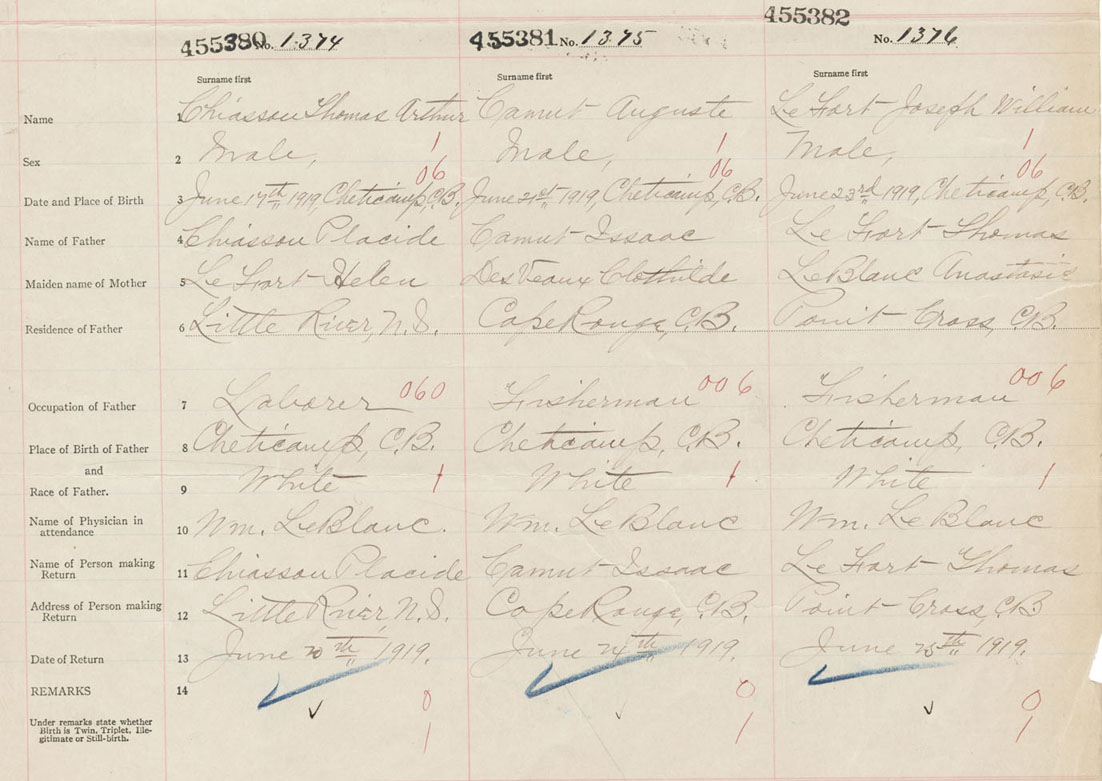 455380 No. 1374 455381 No. 1375 455382 No. 1376
Surname first Surname first Surname first
Name 1 Chiasson Thomas Arthur Camut Auguste Le Fort Joseph William
Sex 2 Male, 1 Male, 1 Male, 1
06 06 06
Date and Place of Birth 3 June 17th 1919, Cheticamp, C.B. June 21st 1919, Cheticamp, C.B. June 23rd 1919, Cheticamp, C.B.
Name of Father 4 Chiasson Placide Camut Issaac Le Fort Thomas
Maiden name of Mother 5 Le Fort Helen DesVeaux Clothilde LeBlanc Anastasis
Residence of Father 6 Little River, N.S. Cape Rouge, C.B. Point Cross, C.B.
Occupation of Father 7 Laborer 060 Fisherman 006 Fisherman 006
Place of Birth of Father 8 Cheticamp, C.B. Cheticamp, C.B. Cheticamp, C.B.
and
Race of Father. 9 White 1 White 1 White 1
Name of Physician in
attendance 10 Wm. LeBlanc. Wm. LeBlanc Wm. Le Blanc
Name of Person making
Return 11 Chiasson Placide Camut Issaac Le Fort Thomas
Address of Person making
Return 12 Little River, N.S. Cape Rouge, C.B. Point Cross, C.B
Date of Return 13 June 20th 1919. June 24th 1919. June 25th 1919.
REMARKS 14 0 0 0
Under remarks state whether
Birth is Twin, Triplet, Ille-
gitimate or Still-birth. 1 1 1